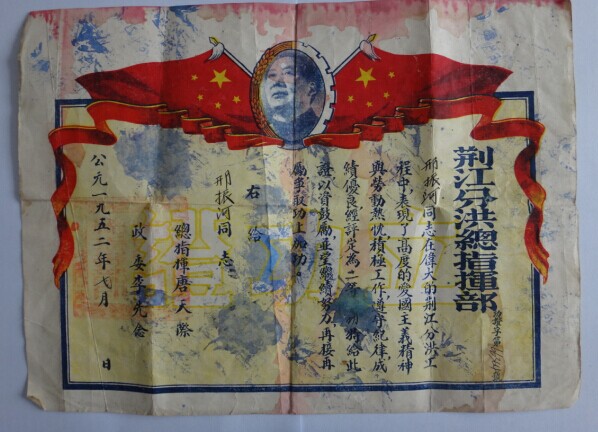 荆江分洪總指揮部
邢振河同志在偉大的荆江分洪工
程中表現了高度的愛國主義精神
與勞動熱忱積極工作遵守紀律成
績優良經評定為二等 特給此
證以資鼓勵並望繼續努力再接再
勵爭取功上加功。
右給
邢振河同志
總指揮唐天際
政委李先念
公元一九五二年 月 日